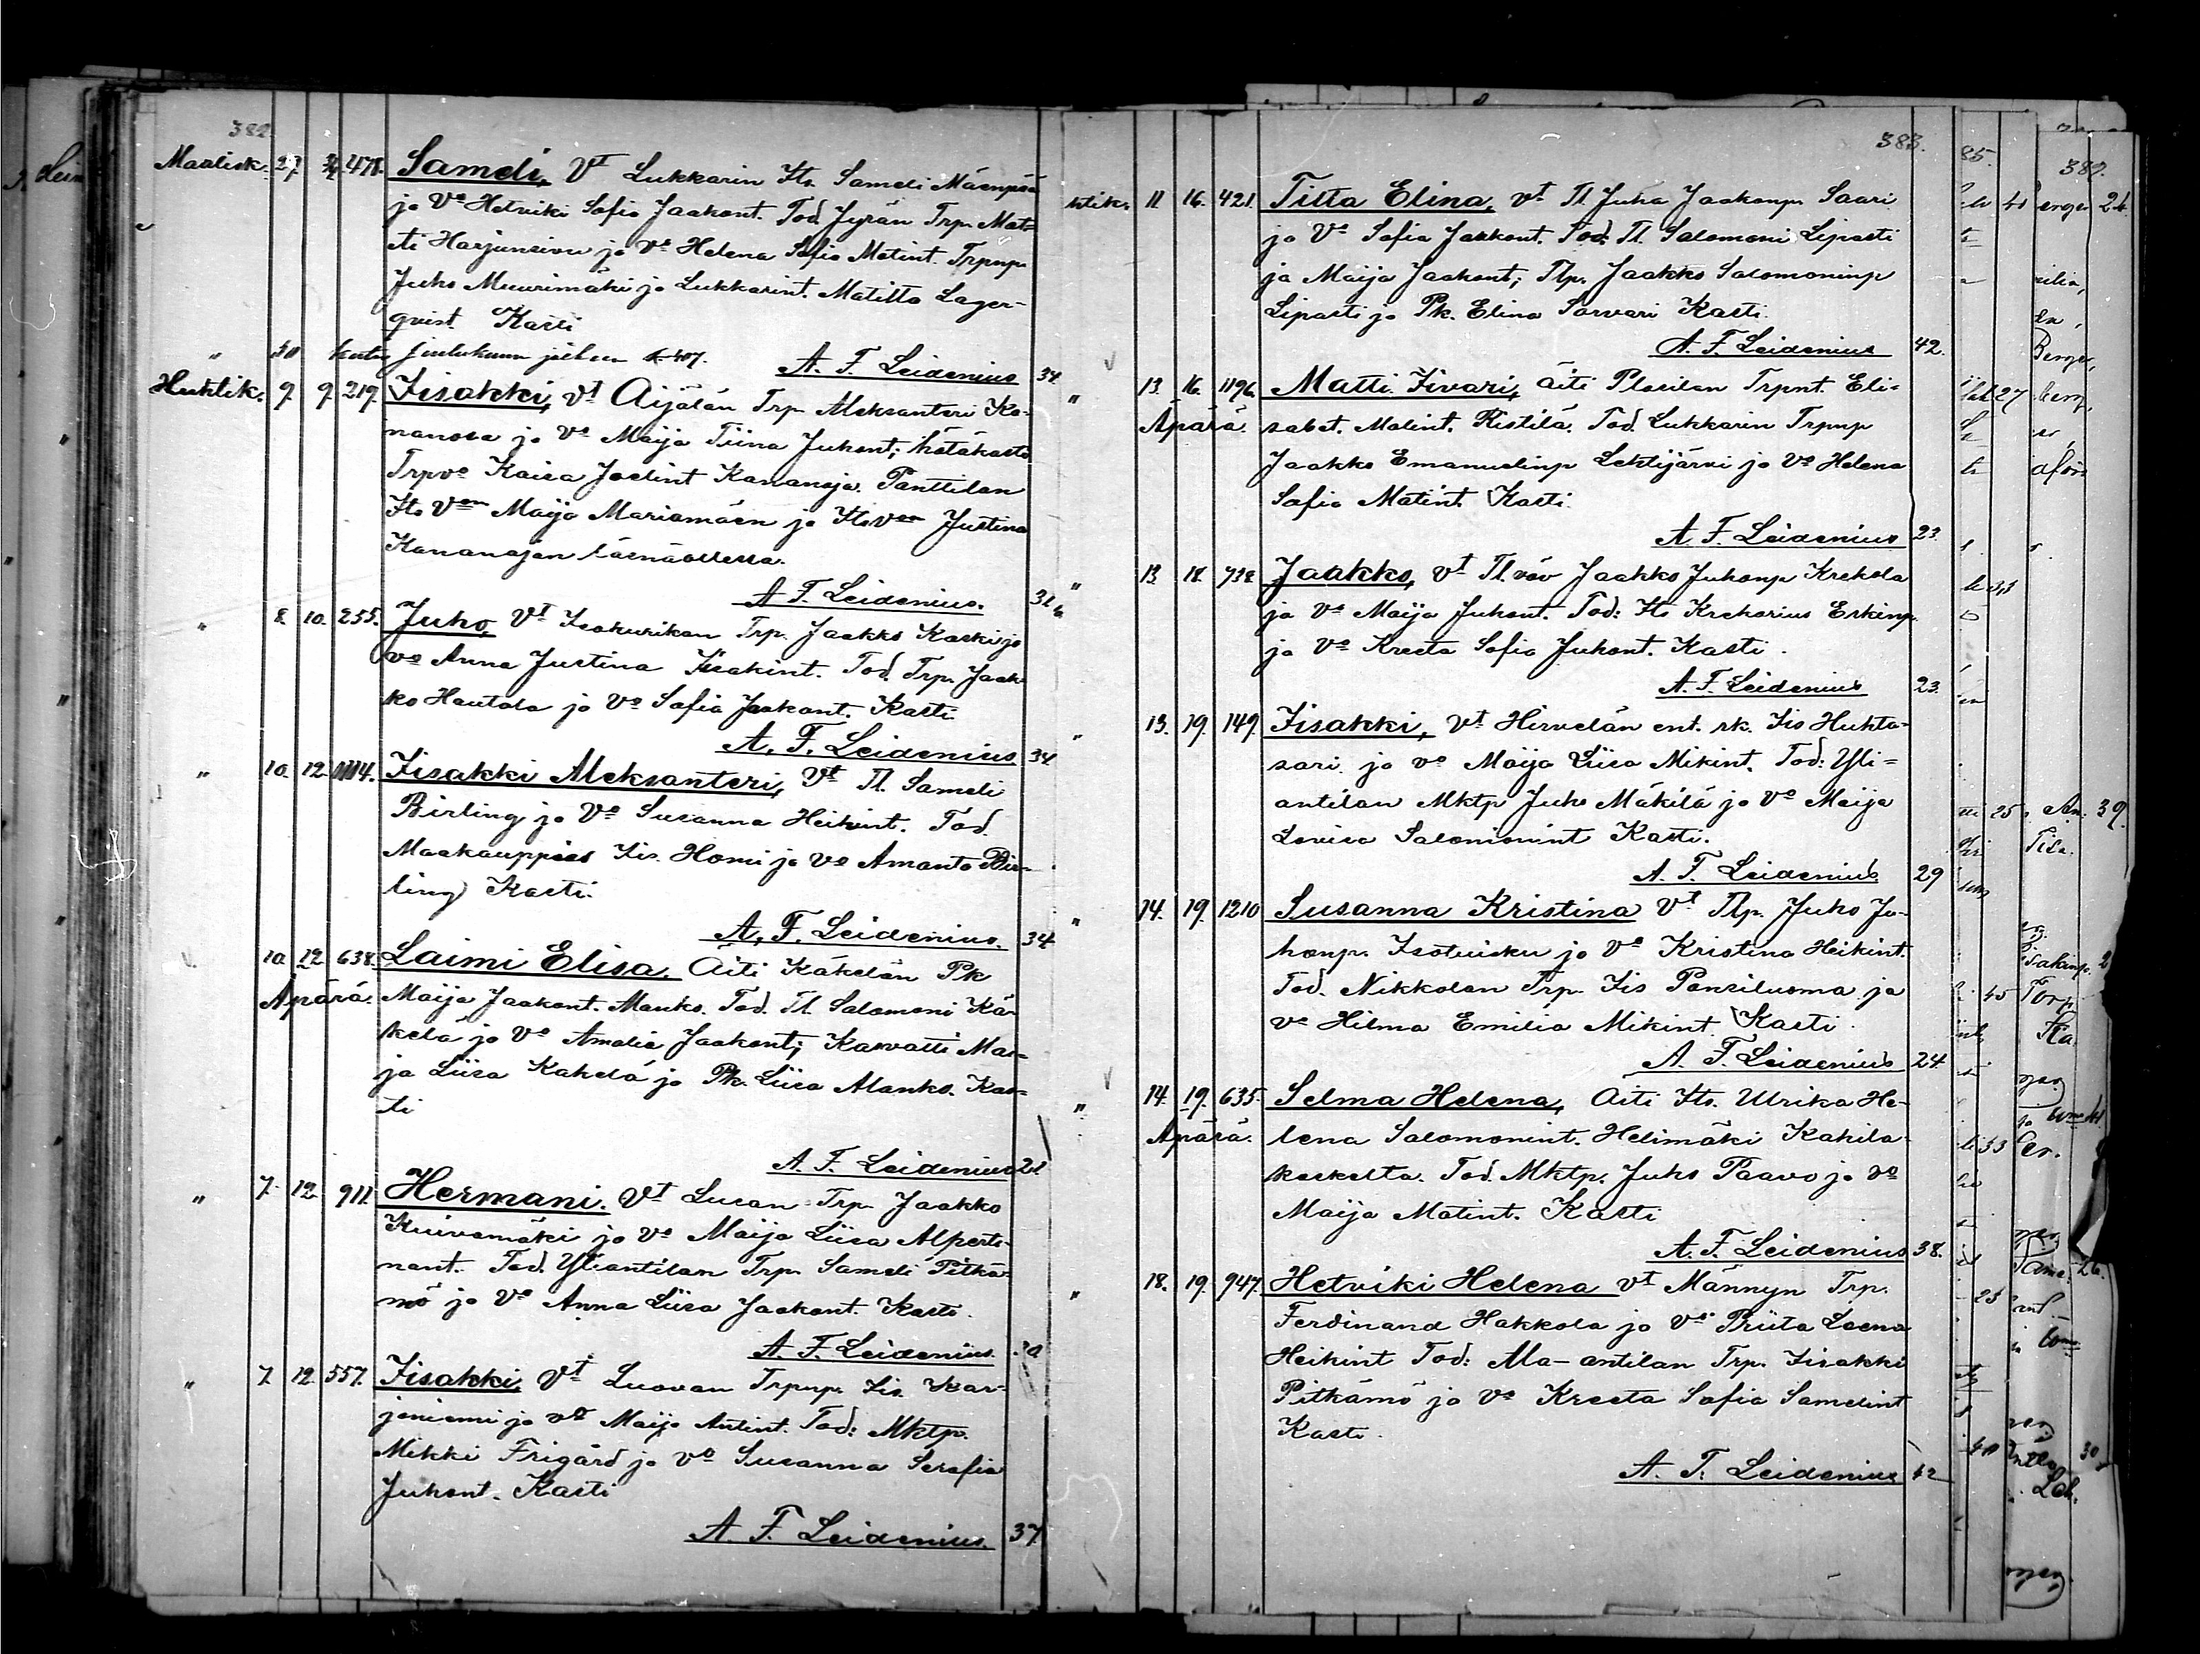 382.
Maalisk. 27. 478. Sameli, Vt Lukkarin Its. Sameli Mäenpää
ja Vo Hetviki Sofia Jaakont. Tod. Jyrän Trp. Mat-
ti Harjunsivu ja Vo Helena Sofia Matint. Trpnp.
Juho Muurimäki ja Lukkarint. Matilta Lager-
qvist. Kasti
" 30 joulukuun jälkeen 407.
A. F. Leidenius 34.
Huhtik. 9. 9. 219. Iisakki, Vt Äijälän Trp. Aleksanteri Ka-
nanoja ja Vo Maija Tiina Juhont; hätäkaste
Trpvo Kaisa Joelint Kananoja. Panttilan
Its Von Maija Mariamäen ja Its von Justina
Kananojan läsnäollessa.
A. F. Leidenius. 31
" 8. 10. 255. Juho, Vt Isokurikan Trp. Jaakko Kaski ja
vo Anna Justina Iisakint. Tod. Trp. Jaak-
ko Hautala ja Vo Sofia Jaakont. Kasti
A. F. Leidenius 34
" 10. 12. 1114. Iisakki Aleksanteri, Vt Tl. Sameli
Birling ja Vo Susanna Heikint. Tod.
Maakauppias Iis. Homi ja vo Amanta Bir-
ling Kasti.
A. F. Leidenius. 34
10. 12. 638. Laimi Elisa. Äiti Käkelän Pk
Äpärä. Maija Jaakont. Manks. Tod. Tl. Salomoni Kä-
kelä ja Vo Amalia Jaakont; Kasvatti Mai-
ja Liisa Kakelä ja Pk. Liisa Alanko. Kas-
ti
A. F. Leidenius 21
" 7. 12. 911. Hermani. Vt Luoan Trp. Jaakko
Kuivamäki ja vo Maija Liisa Alperti-
nant. Tod. Yliantilan Trp. Sameli Pitkä-
mö ja Vo Anna Liisa Jaakont. Kasti.
A. F. Leidenius.
" 7. 12. 557. Iisakki, Vt Luovan Trpnp. Iis. Kar-
joniemi ja vo Maija Antint. Tod: Mktp.
Mikki Frigård ja Vo Susanna Serafia
Juhont. Kasti
A. F. Leidenius. 37.
383.
11. 16. 421. Tilta Elina, vt Tl. Juha Jaakonp. Saari
ja Vo Sofia Jaakont. Tod: Tl. Salomoni Lipasti
ja Maija Jaakont; Tlp. Jaakko Salomoninp
Lipasti ja Pk. Elina Sorvari Kasti.
A. F. Leidenius 42.
" 13. 16. 1196. Matti Iivari, Äiti Plosilan Trpnt. Eli-
Äpärä. sabet. Malint. Ristilä. Tod. Lukkarin Trpnp
Jaakko Emanuelinp Lehtijärvi ja Vo Helena
Sofia Matint. Kasti.
A. F. Leidenius 23.
" 13. 18. 738. Jaakko, vt Tl. väv Jaakko Juhonp Krekola
ja vo Maija Juhont. Tod: Its Krekorius Erkinp.
ja Vo Kreeta Sofia Juhont. Kasti.
A. F. Leidenius 23.
" 13. 19. 149. Iisakki, vt Hirvelän ent. rk. Iis Huhta-
sari ja vo Maija Liisa Mikint. Tod: Yli-
antilan Mktp Juho Mäkilä ja Vo Maija
Lovisa Salomonint Kasti.
A. F. Leidenius 29
" 14. 19. 1210 Susanna Kristina Vt Tlp. Juho Ju-
honp. Isoluisku ja Vo Kristina Heikint.
Tod. Nikkolan Trp. Iis Pansiluoma ja
vo Hilma Emilia Mikint. Kasti.
A. F. Leidenius 24
" 14. 19. 635. Selma Helena, Äiti Its. Ulrika He-
Äpärä. lena Salomonint. Helimäki Kakila-
koskelta. Tod. Mktp. Juho Paavo ja vo
Maija Matint. Kasti
A. F. Leidenius 38.
" 18. 19. 947. Hetviki Helena vt Männyn Trp.
Ferdinand Hakkola ja vo Priita Leena
Heikint Tod: Ala-antilan Trp. Iisakki
Pitkämö ja Vo Kreeta Sofia Samelint
Kasti.
A. F. Leidenius 42